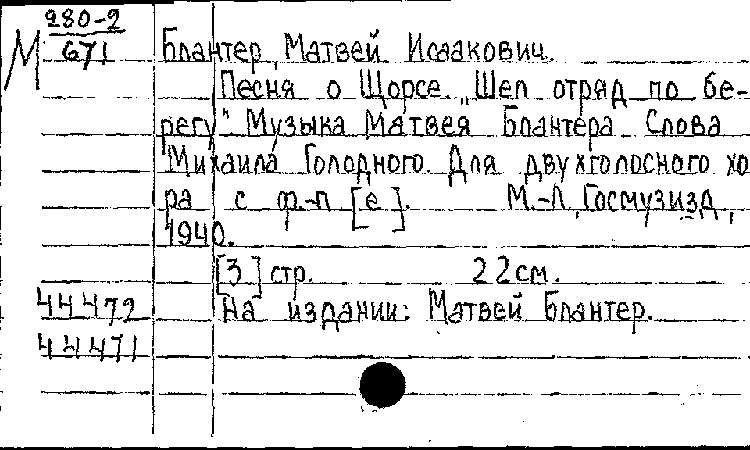 М 280-2
671
Блантер, Матвей Исаакович.
Песня о Щорсе. „Шел отряд по бе-
регу". Музыка Матвея Блантера Слова
Михаила Голодного. Для двухголосного хо
ра с ф.-п [е]. М.-Л, Госмузизд,
1940.
[3] стр. 22 см.
44472 На издании: Матвей Блантер.
44471